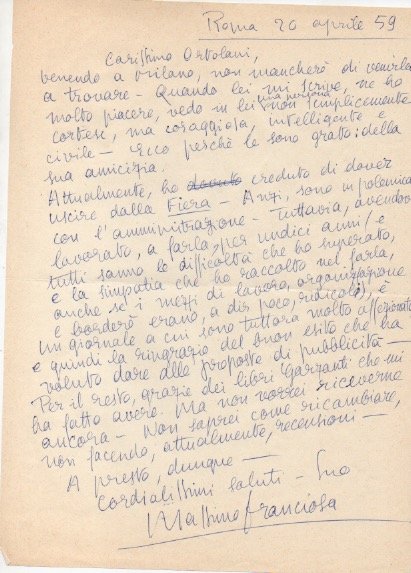 Roma 20 aprile 59
Carissimo Ortolani,
venendo a Milano, non mancherò di venirla
a trovare - Quando lei mi scrive, ne ho
molto piacere, vedo in lei una persona non semplicemente
cortese, ma coraggiosa, intelligente e
civile - Ecco perchè le sono grato: della
sua amicizia.
Attualmente, ho dovuto creduto di dover
uscire dalla Fiera - Anzi, sono in polemica
con l'amministrazione - Tuttavia, avendovi
lavorato, a farla, per undici anni (e
tutti sanno le difficoltà che ho superato,
e la simpatia che ho raccolto nel farla,
anche se i mezzi di lavoro, organizzazione
e borderò erano, a dir poco, ridicoli), è
un giornale a cui sono tuttora molto affezionato
e quindi la ringrazio del buon esito che ha
voluto dare alle proposte di pubblicità -
Per il resto, grazie dei libri Garzanti che mi
ha fatto avere. Ma non vorrei riceverne
ancora - Non saprei come ricambiare,
non facendo, attualmente, recensioni -
A presto, dunque -
Cordialissimi saluti - Suo
Massimo Franciosa